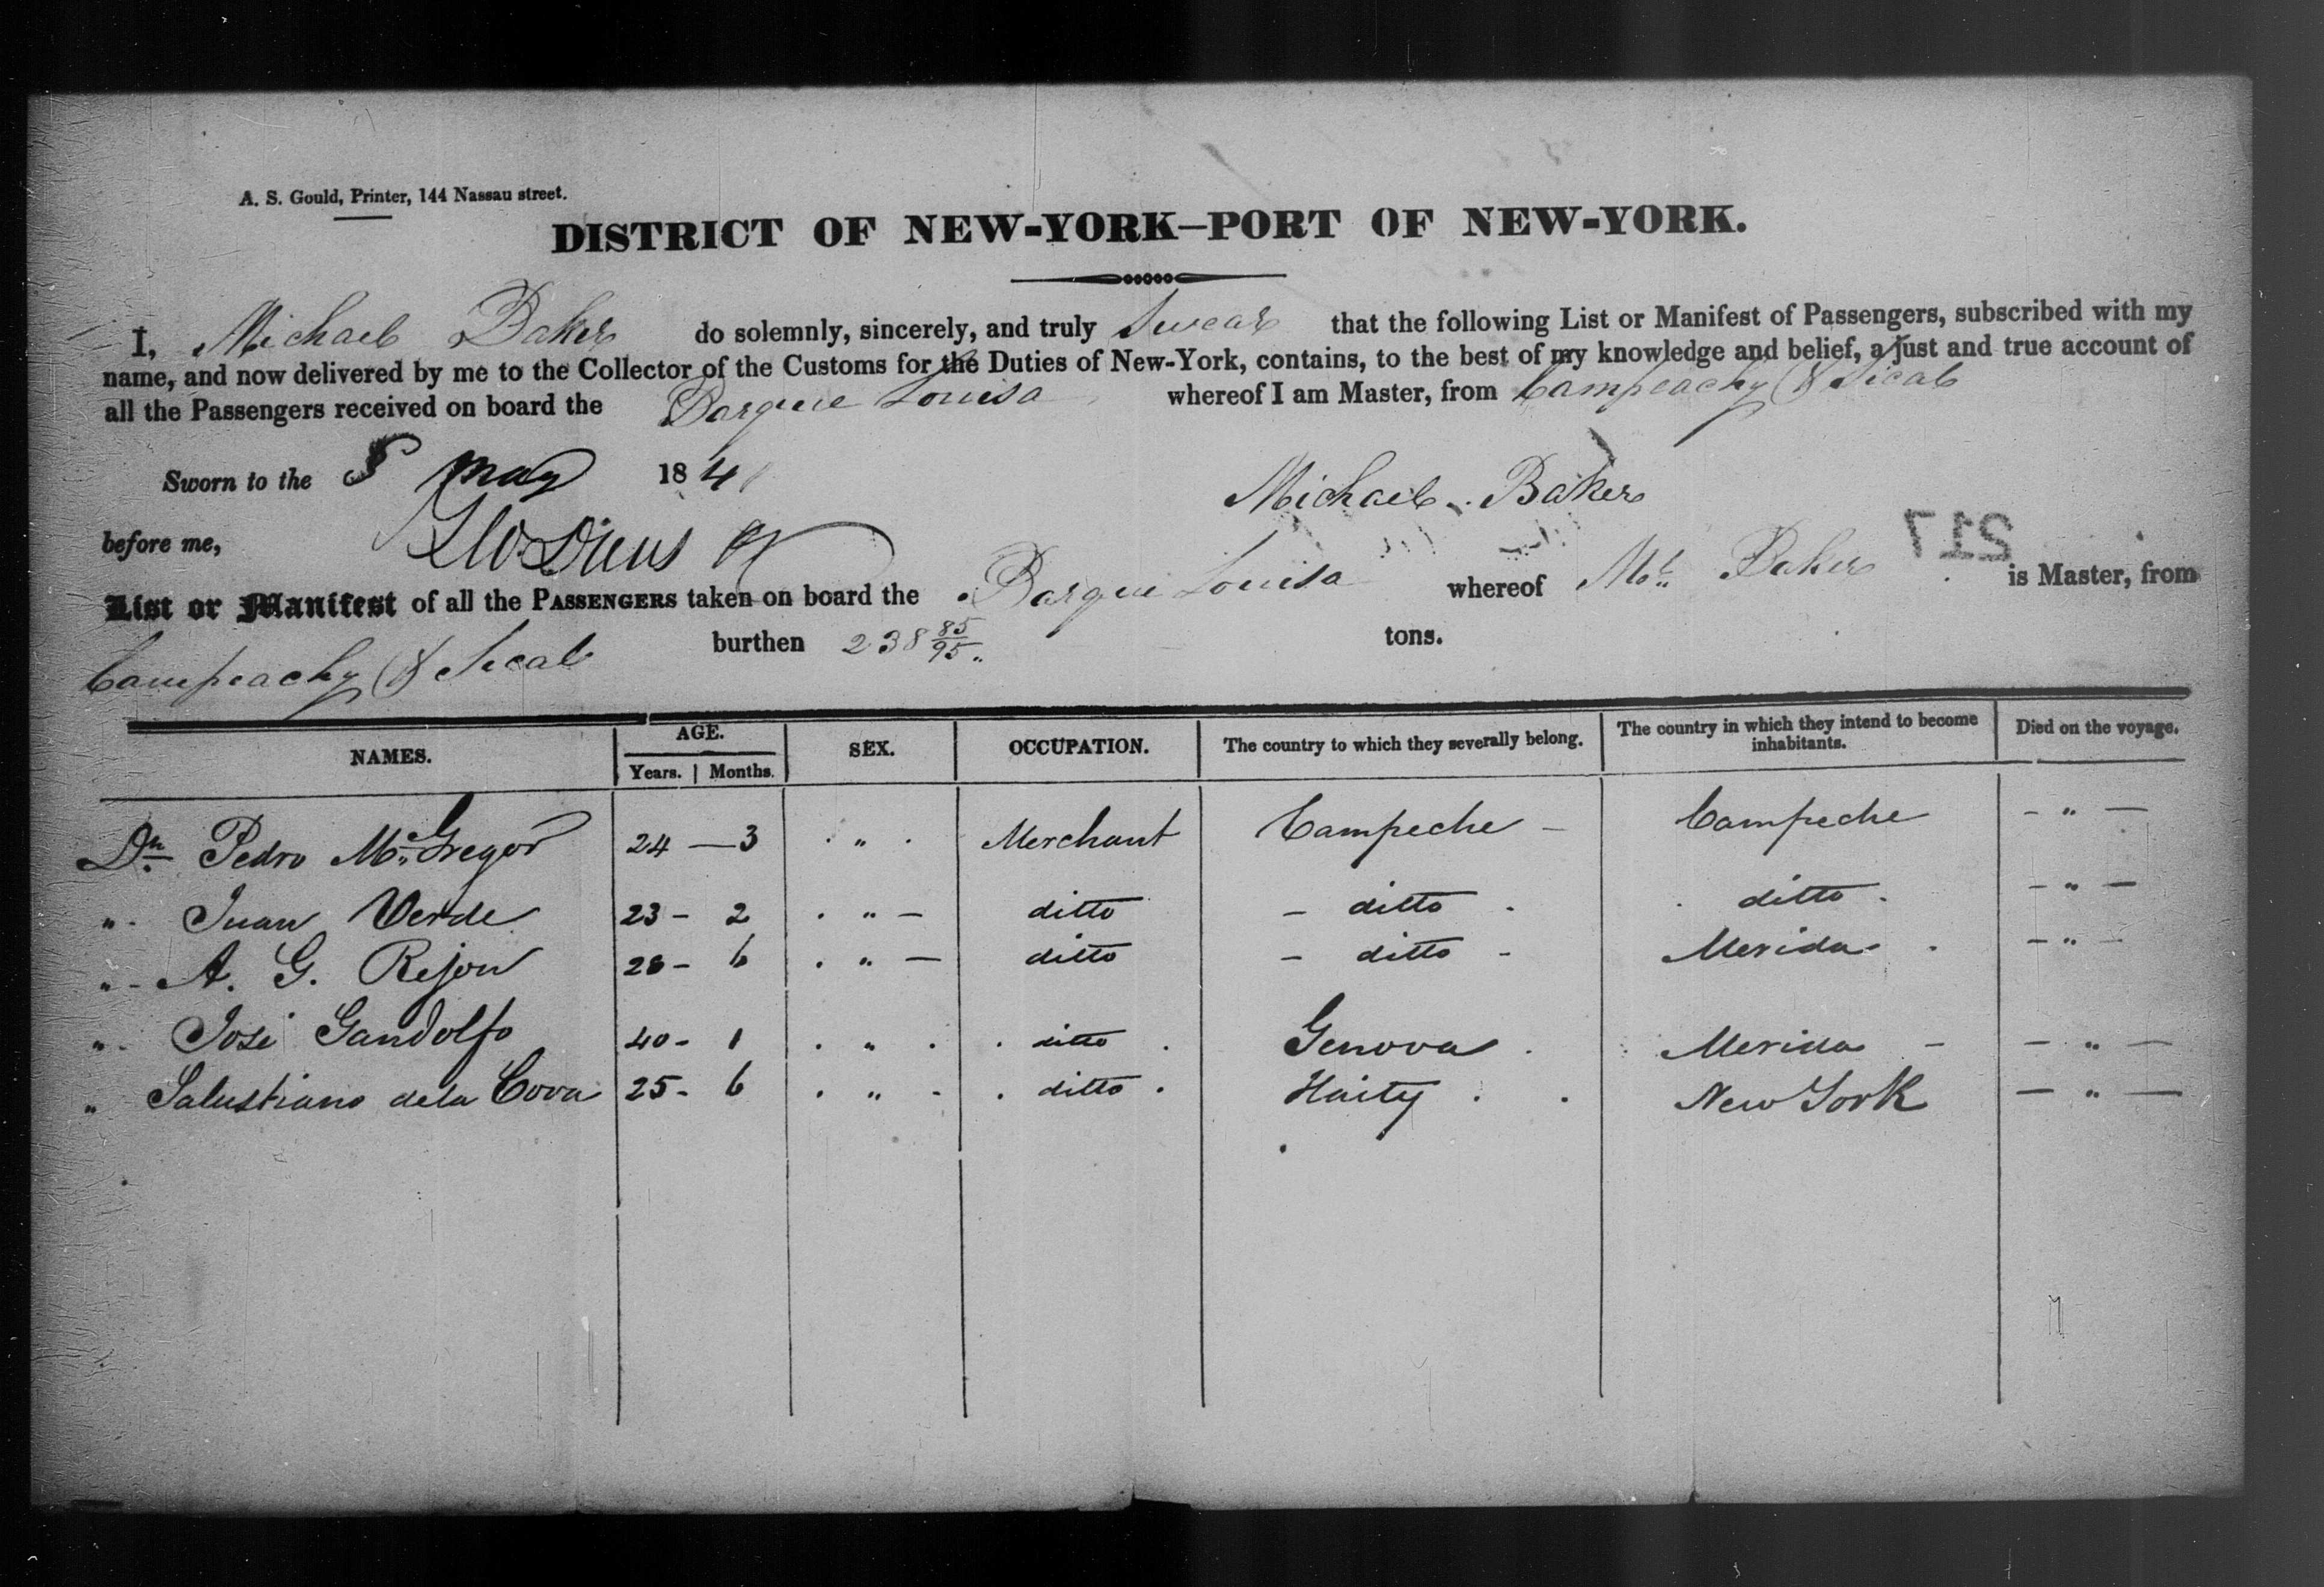 A. S. Gould, Printer, 144 Nassau street.
DISTRICT OF NEW-YORK—PORT OF NEW-YORK.
I, Michael Baker do solemnly, sincerely, and truly Swear that the following List or Manifest of Passengers, subscribed with my
name, and now delivered by me to the Collector of the Customs for the Duties of New-York, contains, to the best of my knowledge and belief, a just and true account of
all the Passengers received on board the Barque Louisa whereof I am Master, from Campeachy & Sical
Sworn to the 8 May 1841 Michael Baker
before me,
217
List or Manifest of all the PASSENGERS taken on board the Barque Louisa whereof Ml. Baker is Master, from
Campeachy & Sical burthen 238 85/95 tons.
NAMES. AGE. Years. Months. SEX. OCCUPATION. The country to which they severally belong. The country in which they intend to become inhabitants. Died on the voyage.
Dn. Pedro Mc.Gregor 24 — 3 " Merchant Campeche — Campeche — " —
" Juan Verde 23 - 2 " — ditto — ditto ditto — " —
" A. G. Rejon 26 - 6 " — ditto — ditto - Merida — " —
" José Gandolfo 40 - 1 " ditto Genova Merida - — " —
" Salustiano dela Cova 25 - 6 " - ditto Haity New York — " —